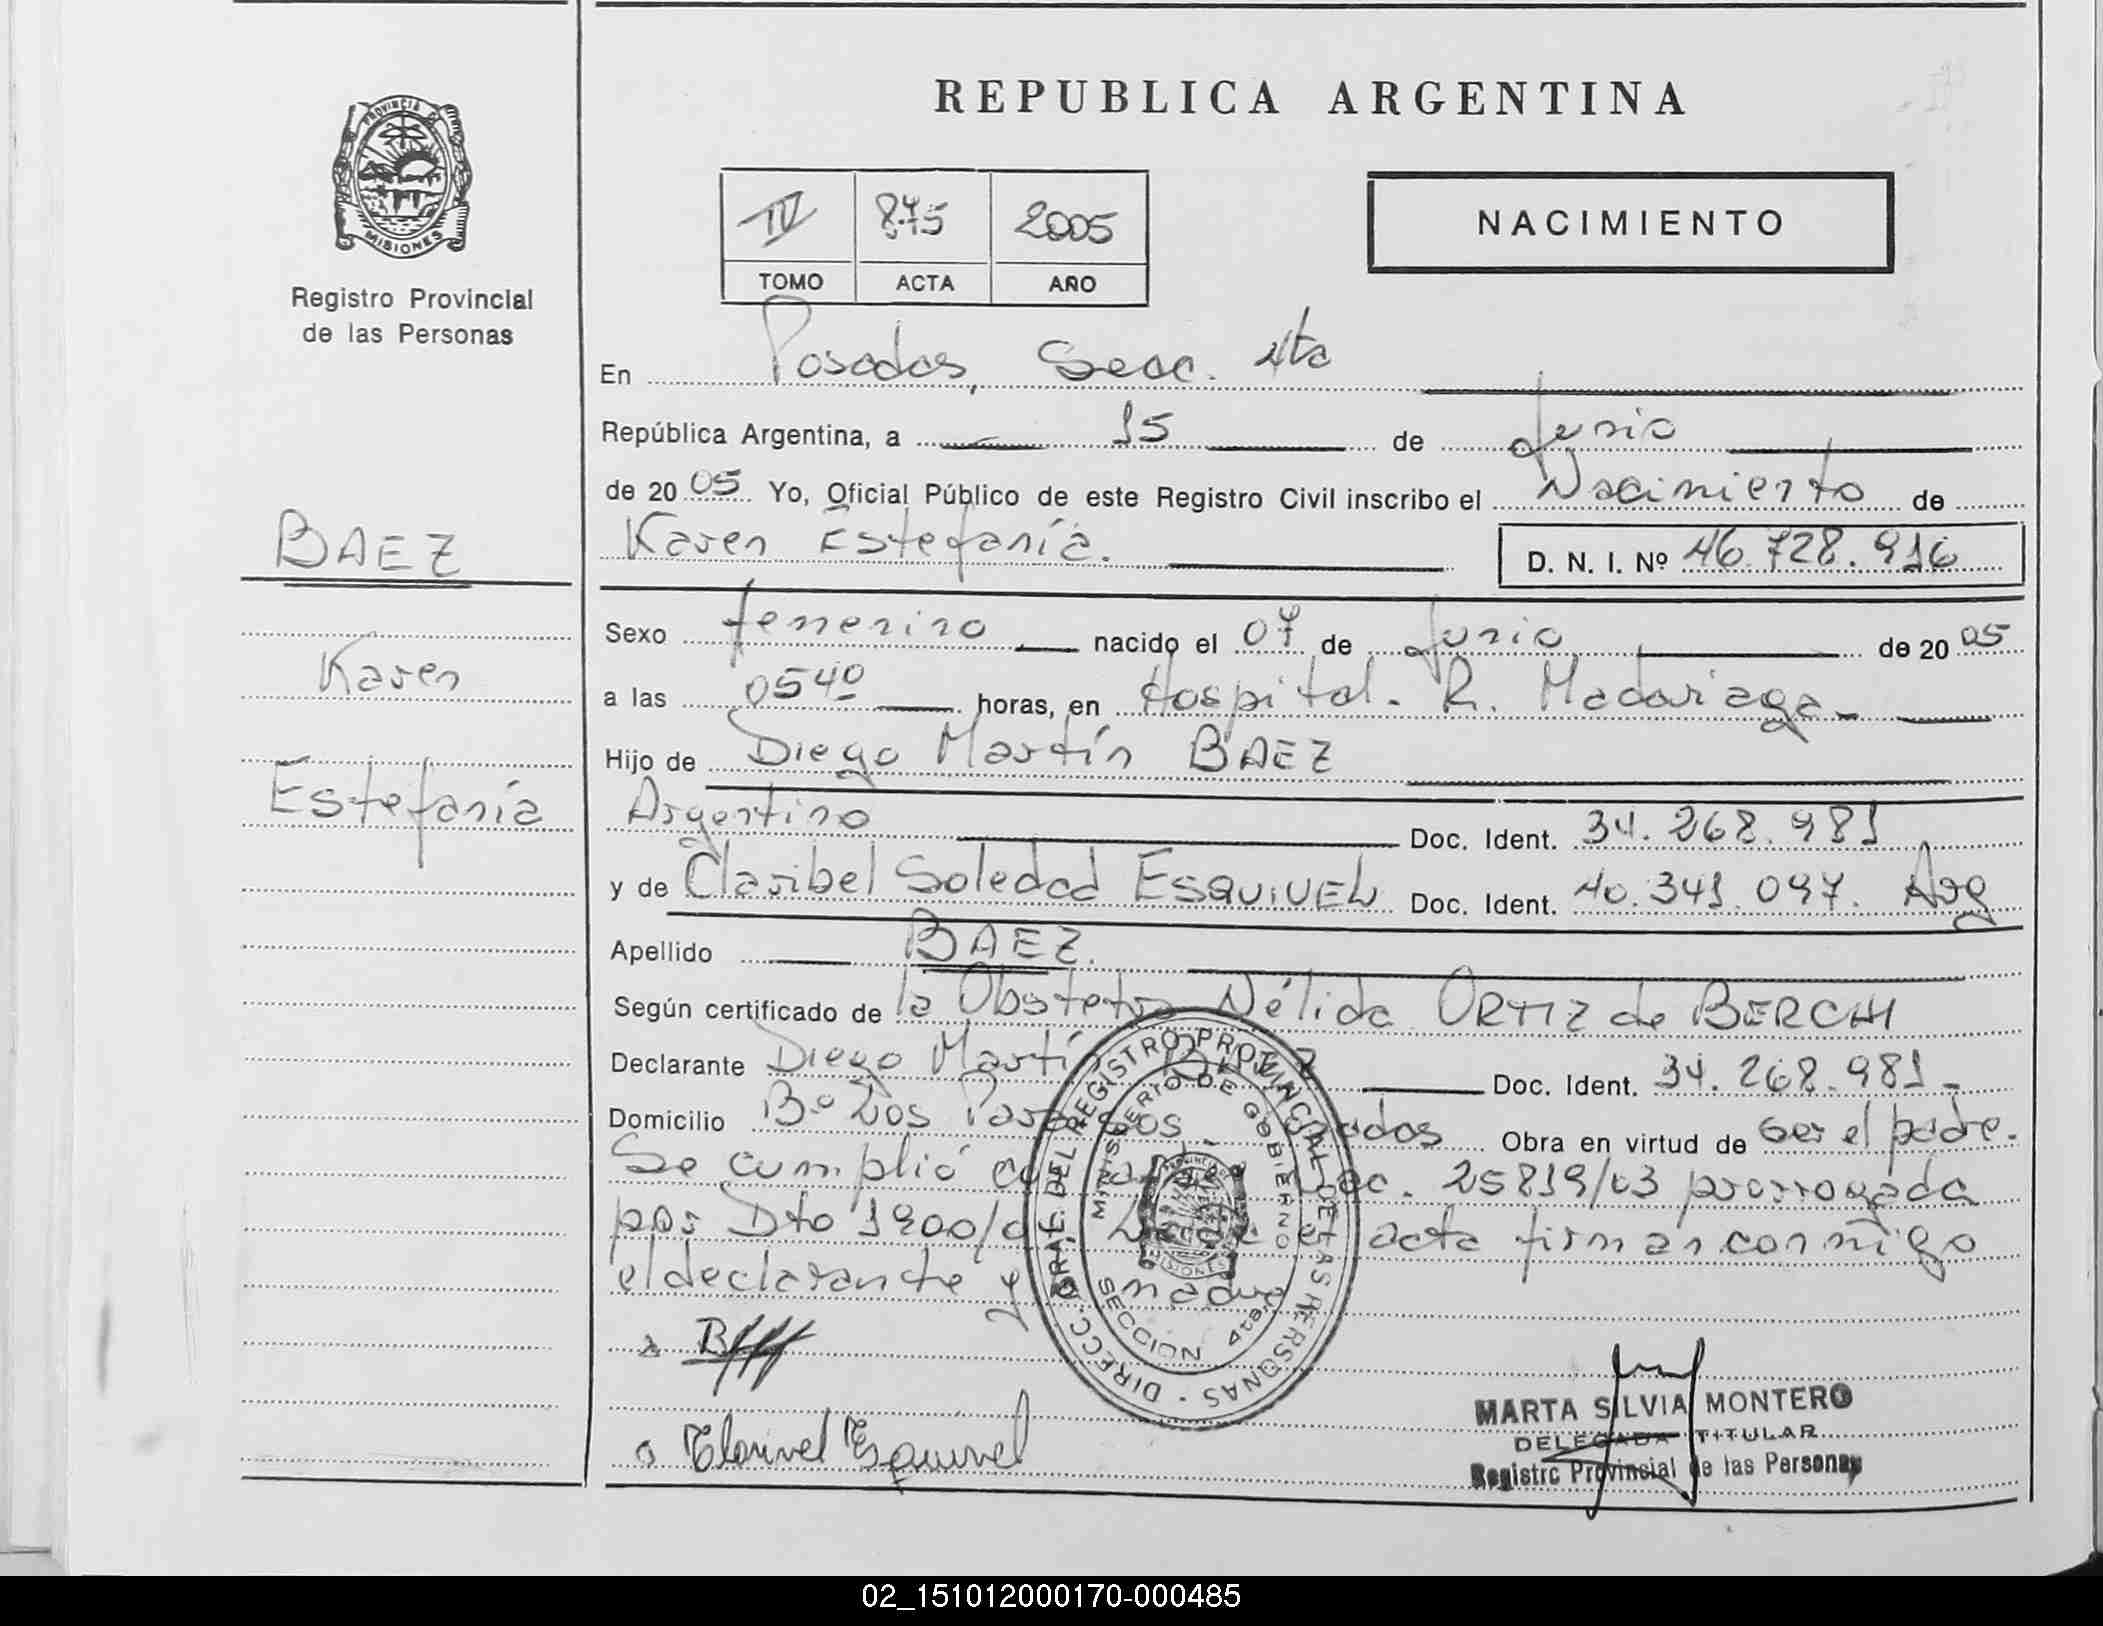 REPUBLICA ARGENTINA
PROVINCIA DE
MISIONES
Registro Provincial
de las Personas
IV 2005
TOMO ACTA AÑO
NACIMIENTO
En Posadas, Secc. 4ta
República Argentina, a 15 de Junio
de 2005 Yo, Oficial Público de este Registro Civil inscribo el Nacimiento de
Karen Estefanía. D. N. I. Nº 46.728.916
BAEZ
Karen
Estefanía
Sexo femenino nacido el 07 de Junio de 2005
a las 0540 horas, en Hospital. R. Madariaga-
Hijo de Diego Martín BAEZ
Argentino Doc. Ident. 34.268.981
y de Claribel Soledad ESQUIVEL Doc. Ident. 40.341.097. Arg
Apellido BAEZ.
Según certificado de la Obstetra Nélida ORTIZ de BERCHI
Declarante Diego Martín BAEZ Doc. Ident. 34.268.981-
Domicilio Bº Los Posadas Obra en virtud de ser el padre.
Se cumplió 25819/03 prorrogada
por Dto 1900/0 el acta firman conmigo
el declarante y madre
DIRECC. GRAL. DEL REGISTRO PROVINCIAL DE LAS PERSONAS
MINISTERIO DE GOBIERNO
SECCION 4ta.
MISIONES
Clarivel Esquivel
MARTA SILVIA MONTERO
DELEGADA TITULAR
Registro Provincial de las Personas
02_151012000170-000485